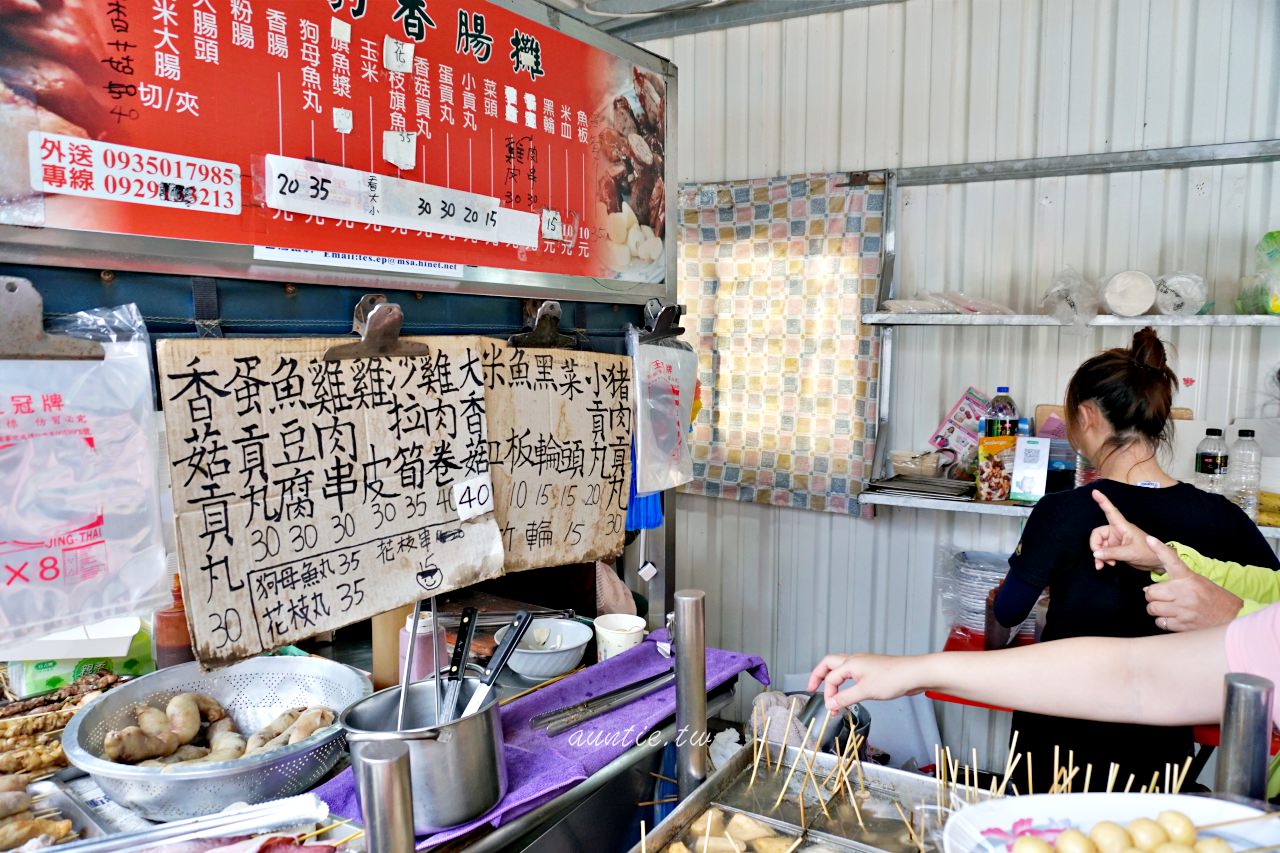 香腸攤
香菇
40
米大腸
切/夾
大腸頭
粉腸
香腸
狗母魚丸
旗魚漿
玉米
花枝旗魚
香菇貢丸
蛋貢丸
小貢丸
菜頭
黑輪
米血
魚板
雞皮 30
肉串 30
35
外送 0935017985
專線
20 35
看大小
30 30 20 15
15
10 10
元 元 元 元 元 元 元 元 元 元 元 元
Email:tes.ep@msa.hinet.net
香菇貢丸 30
蛋貢丸 30
魚豆腐 30
雞肉串 30
雞皮 30
沙拉筍 35
雞肉卷 40
大香菇 40
狗母魚丸 35
花枝丸 35
花枝串
15
米
魚板 10
黑輪 15
菜頭 15
小貢丸 20
豬肉貢丸 30
竹輪 15
冠牌
JING-THAI
×8
auntie.tw